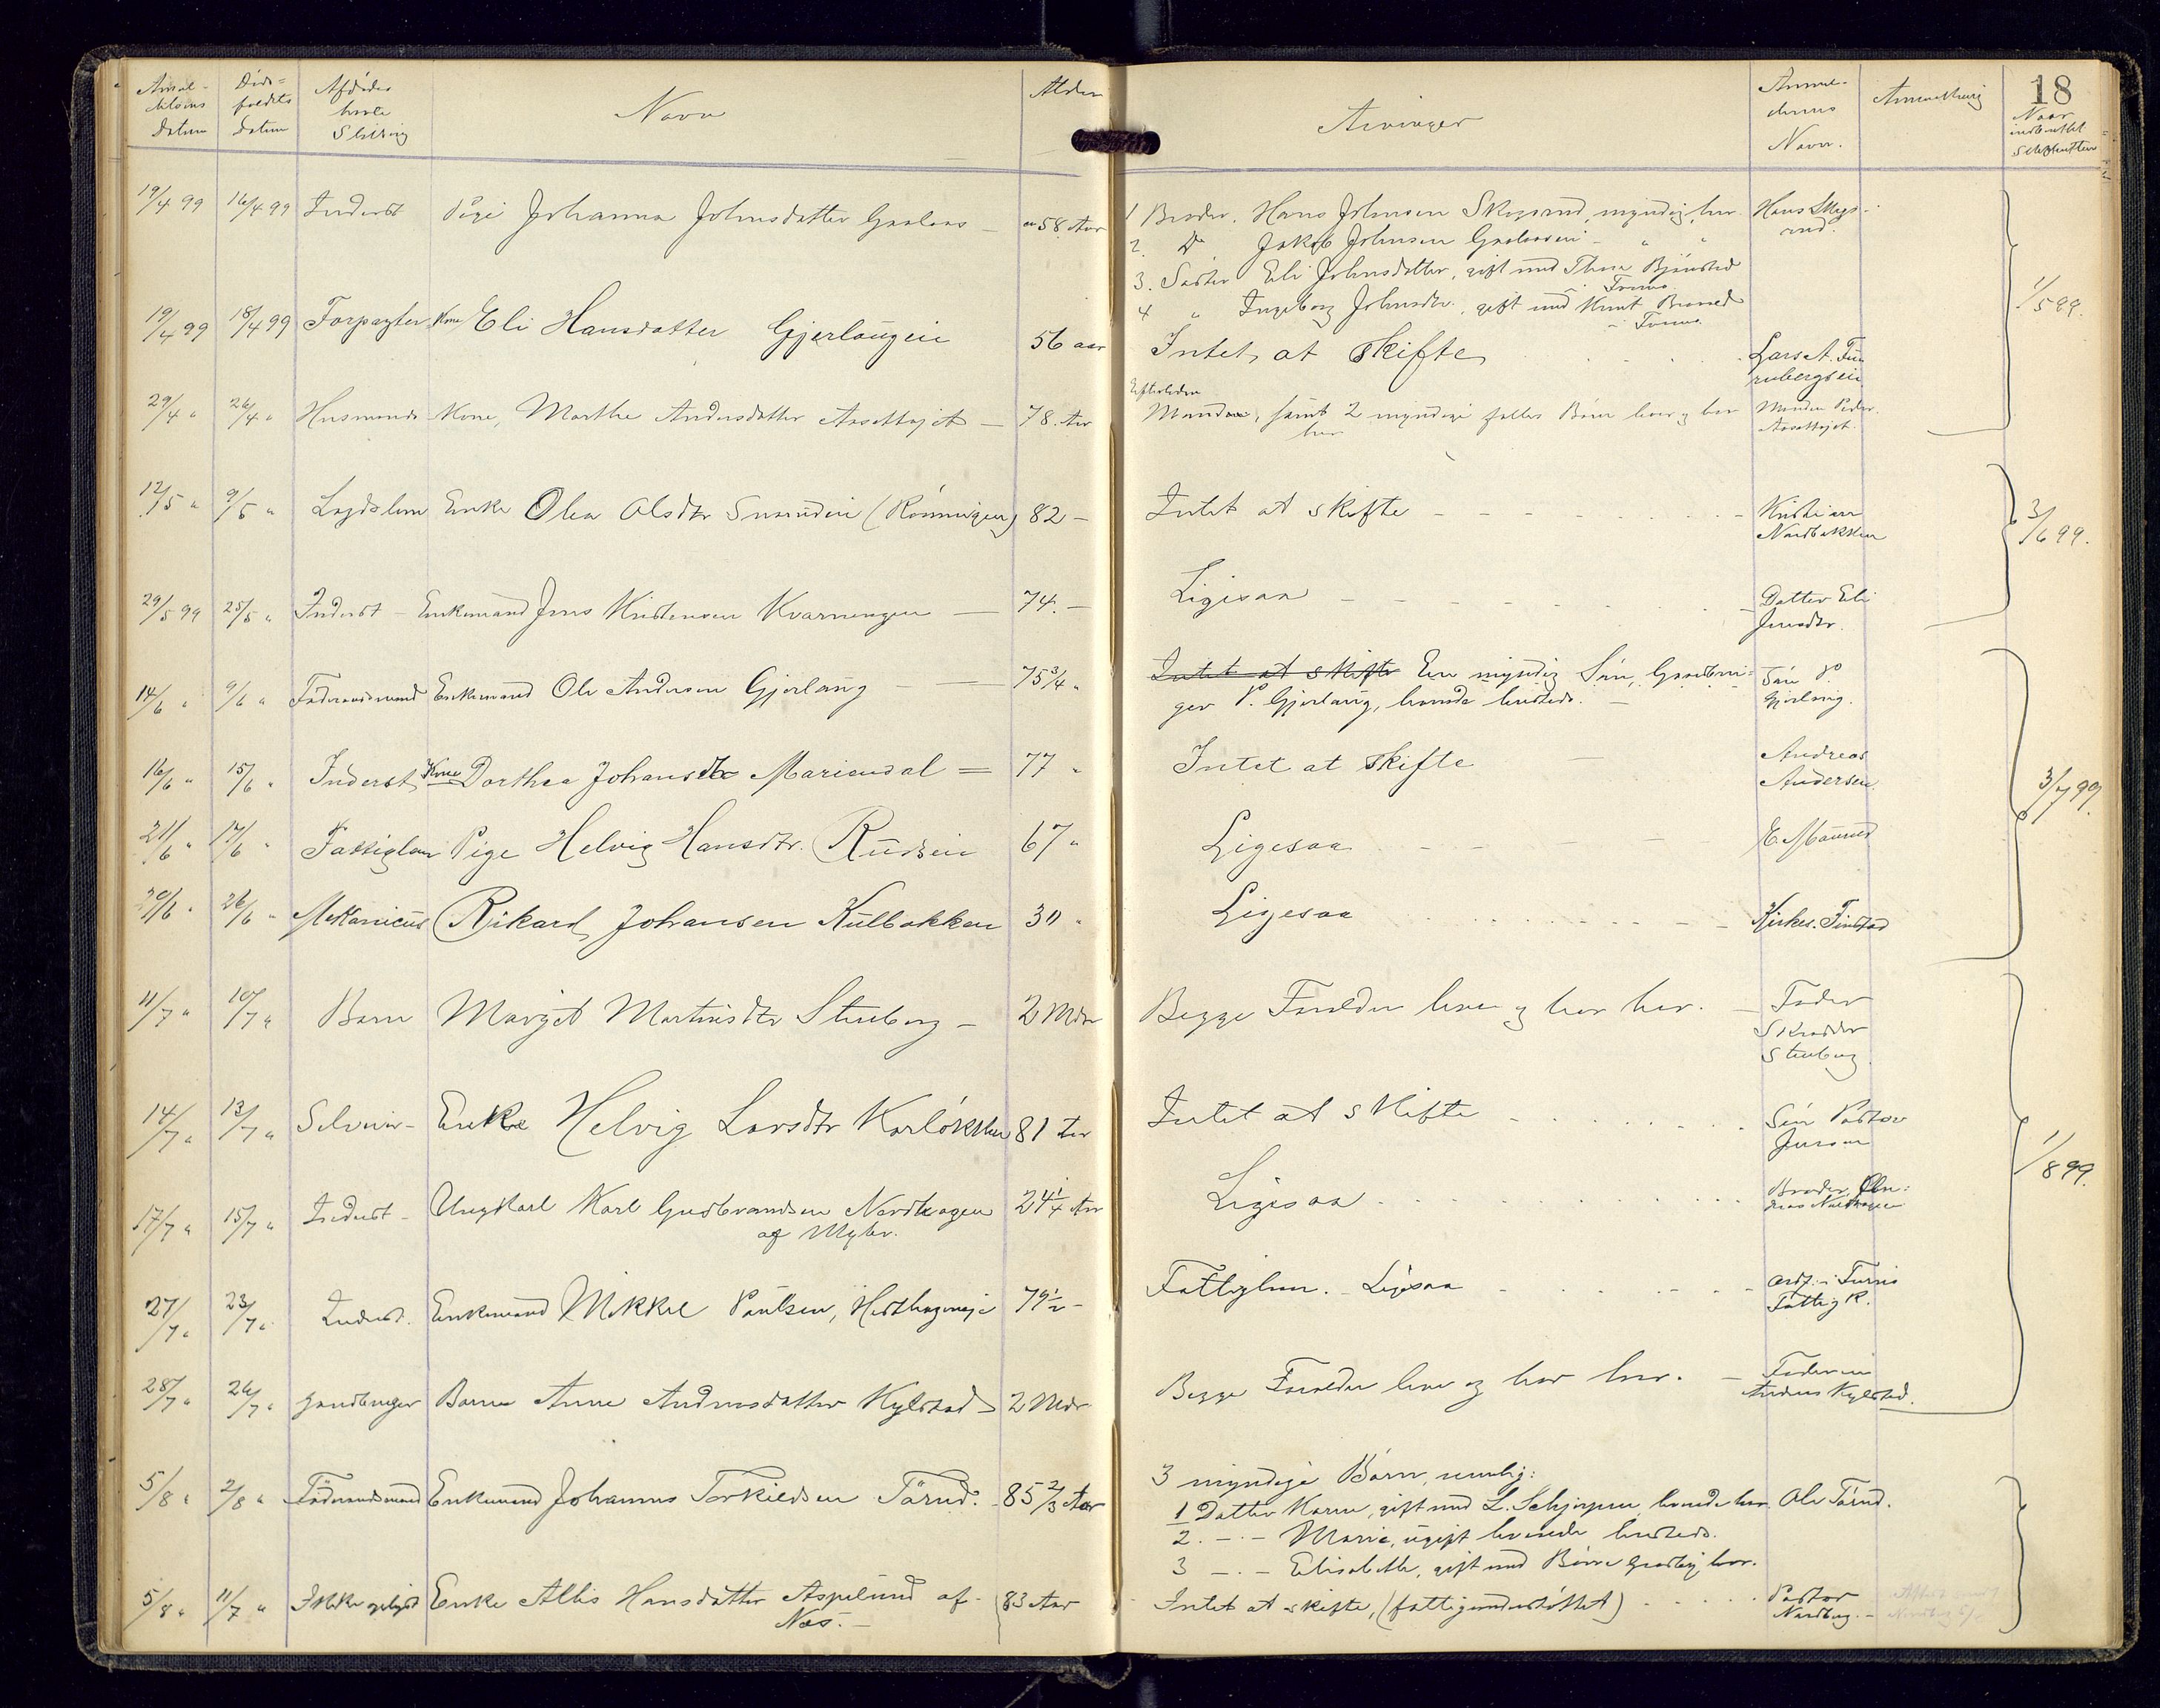 18
Anmel-
delsens
Datum
Døds-
faldets
Datum
Afdødes
borgerlige
Stilling
Navn
Alder
Arvinger
Anmel-
derens
Navn.
Anmerkning
Naar
indsendt
Skifteretten
19/4 99 16/4 99 Inderst Pige Johanna Johnsdatter Graloas — 58 Aar
1 Broder. Hans Johnsen Skogrud, myndig, her. Hans Skog-
rud.
2. Do Jakob Johnsen
3. Søster Eli Johnsdatter, gift med Thore Bjönstad
i Furnes.
4 " Ingeborg Johnsdtr. gift med Knut
i Furnes.
1/5 99.
19/4 99 18/4 99 Forpagter Kone Eli Hansdatter Gjerlaugeie 56 aar
Intet at skifte Lars A. Fu-
rubergseie
29/4 " 26/4 " Husmands Kone, Marthe Andersdatter Aasettejet — 78. Aar
Efterleder
Manden, samt 2 myndige fælles Børn lever og bor
her
Manden Peder
Aasettejet.
12/5 " 9/5 " Lægdslem Enke Olea Olsdtr (Rønningen) 82 —
Intet at skifte Kristian
Nordbakken
3/6 99.
29/5 99 25/5 " Inderst — Enkemand Jens Kristensen Kvarnengen — 74. —
Ligesaa Datter Eli
Jensdtr.
14/6 " 9/6 " Föderaadsmand Enkemand Ole Andersen Gjerlaug — 75 3/4 "
Intet at skifte En myndig Søn, Gaardbru-
ger P. Gjerlaug, boende hersteds. — Søn P.
Gjerlaug.
16/6 " 15/6 " Inderst Kone Dorthea Johansdtr Mariendal = 77 "
Intet at skifte Andreas
Andersen.
3/7 99.
21/6 " 17/6 " Fattiglem Pige Helvig Hansdtr. Rudseie 67 "
Ligesaa E. Maurud
29/6 " 26/6 " Mekanicus Rikard Johansen Kulbakken 30 "
Ligesaa Kirkes. Finstad
11/7 " 10/7 " Barn Margit Martinsdtr Stenberg — 2 Mdr
Begge Forældre lever og bor her. — Fader
Skrædder
Stenberg.
14/7 " 13/7 " Selveier- Enke Helvig Larsdtr Karløkken 81 Aar
Intet at skifte Søn Pastor
Jensen
1/8 99.
17/7 " 15/7 " Inderst — Ungkarl Karl Gudbrandsen Nordhagen 24 1/4 Aar
af
Ligesaa Broder, An-
dreas Nordhagen
27/7 " 23/7 " Inderst. Enkemand Mikkel Paulsen, Hesthageneje 79 1/2 —
Fattiglem. — Ligesaa Ordf. i Furnes
Fattigk.
28/7 " 26/7 " Gaardbruger Barn Anne Andersdatter Kylstad 2 Mdr
Begge Forældre lever og bor her. — Faderen
Anders Kylstad.
5/8 " 2/8 " Föderaadsmand Enkemand Johannes Torkildsen Törud. 85 2/3 Aar
3 myndige Børn, nemlig:
1 Datter Karen, gift med L. Schjerpen, boende her. Ole Tørud.
2. —.— Marie, ugift boende hersteds.
3 —.— Elisabeth, gift med Börre Grasby, her.
5/8 " 11/7 " Ikke opgivet Enke Allis Hansdatter Aspelund af 83 Aar
Næs. —
Intet at skifte, (fattigunderstøttet) Pastor
Nordberg. —